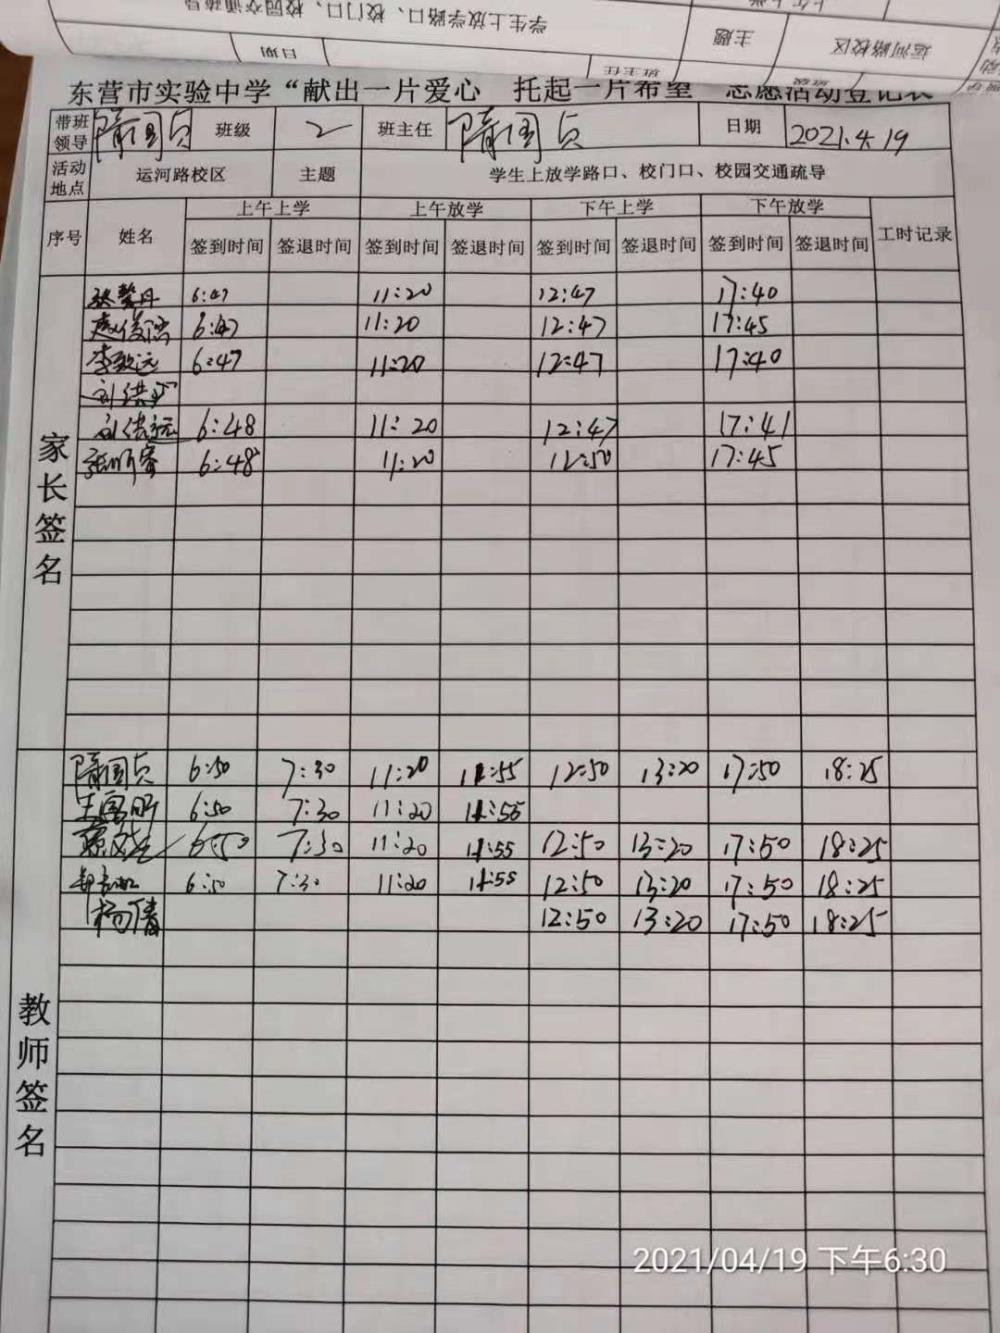 学生上放学路口、校门口、校园交通疏导
主题
运河路校区
日期
班主任
班级
东营市实验中学“献出一片爱心 托起一片希望” 志愿活动登记表
带班领导 隋国贞 班级 2 班主任 隋国贞 日期 2021.4.19
活动地点 运河路校区 主题 学生上放学路口、校门口、校园交通疏导
序号 姓名 上午上学 上午放学 下午上学 下午放学 工时记录
签到时间 签退时间 签到时间 签退时间 签到时间 签退时间 签到时间 签退时间
家长签名
张馨丹 6:47 11:20 12:47 17:40
赵俊浩 6:47 11:20 12:47 17:45
李致远 6:47 11:20 12:47 17:40
刘洪
6:48 11:20 12:47 17:41
6:48 11:20 12:50 17:45
教师签名
隋国贞 6:50 7:30 11:20 11:55 12:50 13:20 17:50 18:25
6:50 7:30 11:20 11:55
6:50 7:30 11:20 11:55 12:50 13:20 17:50 18:25
6:50 7:30 11:20 11:55 12:50 13:20 17:50 18:25
杨倩 12:50 13:20 17:50 18:25
2021/04/19 下午6:30